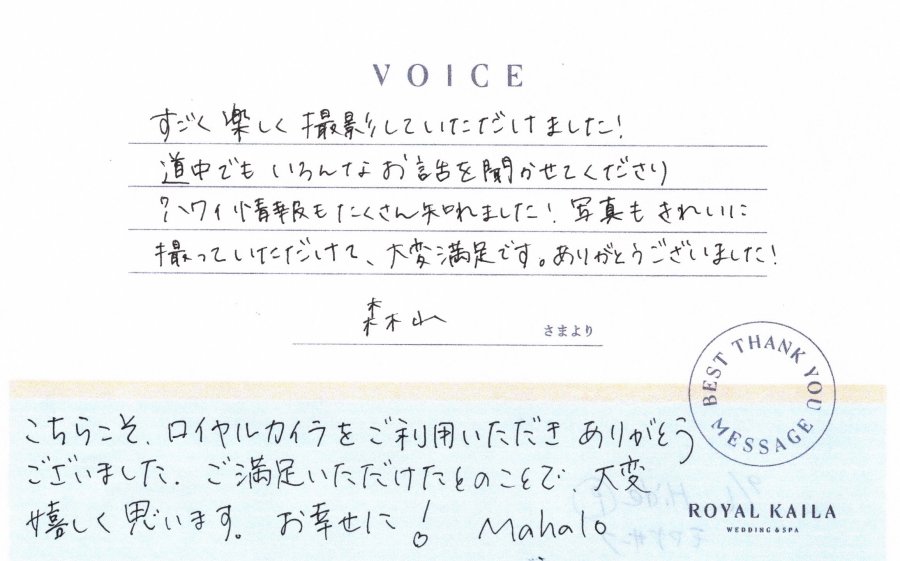 VOICE
すごく楽しく撮影していただけました!
道中でもいろんなお話を聞かせてくださり
ハワイ情報もたくさん知れました!写真もきれいに
撮っていただけて、大変満足です。ありがとうございました!
森山 さまより
BEST THANK YOU MESSAGE
こちらこそ、ロイヤルカイラをご利用いただきありがとう
ございました。ご満足いただけたとのことで、大変
嬉しく思います。お幸せに! Mahalo
ROYAL KAILA
WEDDING & SPA